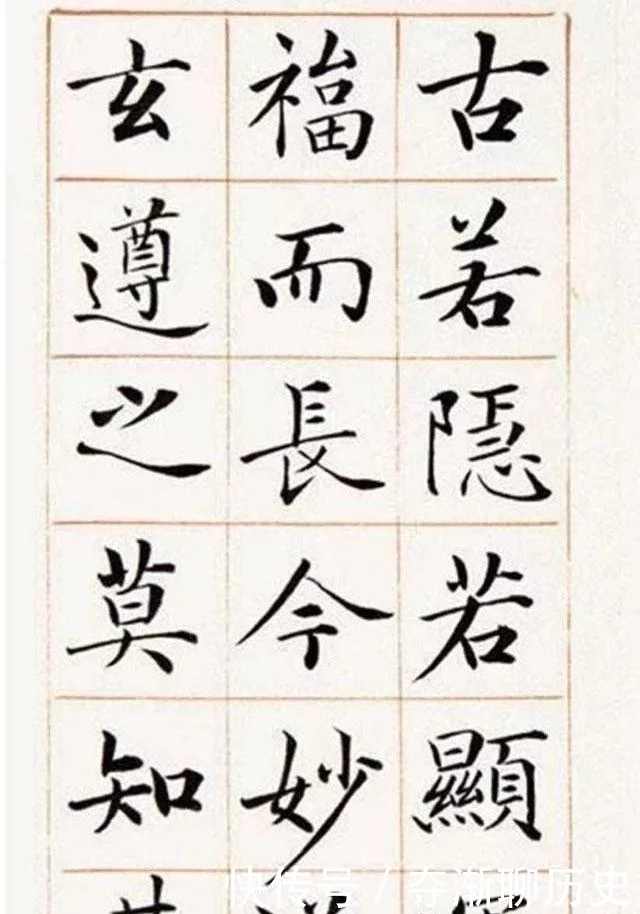 古若隱若顯
福而長今妙
玄遵之莫知
快传号 / 夺渐聊历史